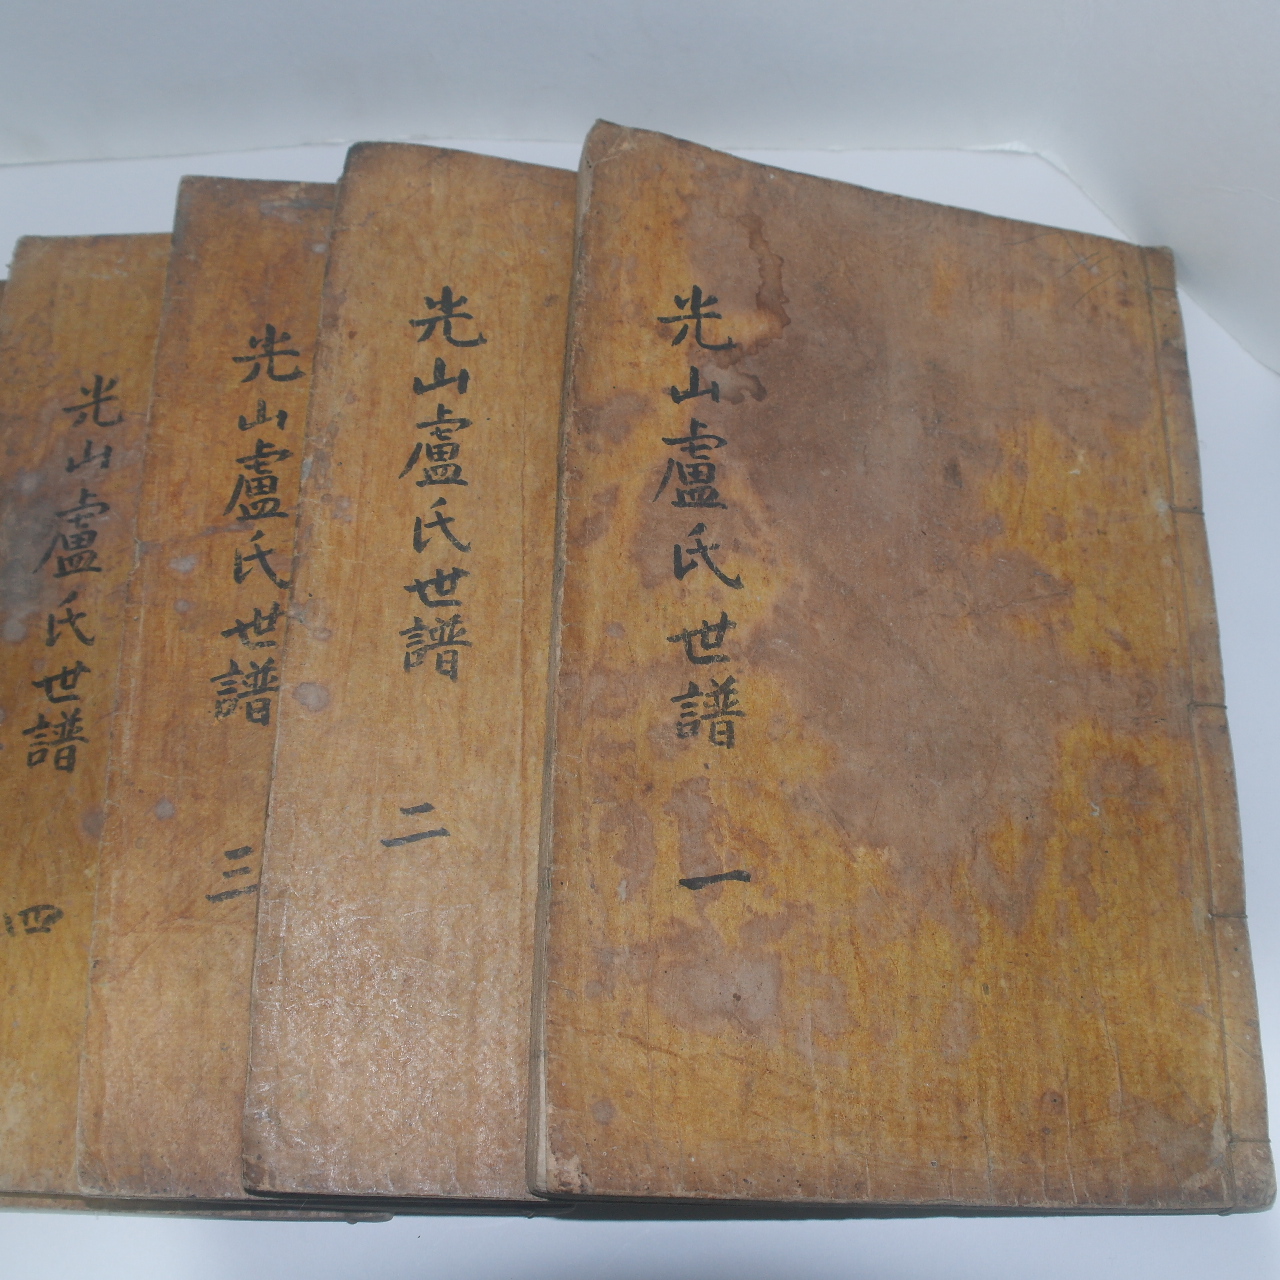 光山盧氏世譜 一
光山盧氏世譜 二
光山盧氏世譜 三
光山盧氏世譜 四